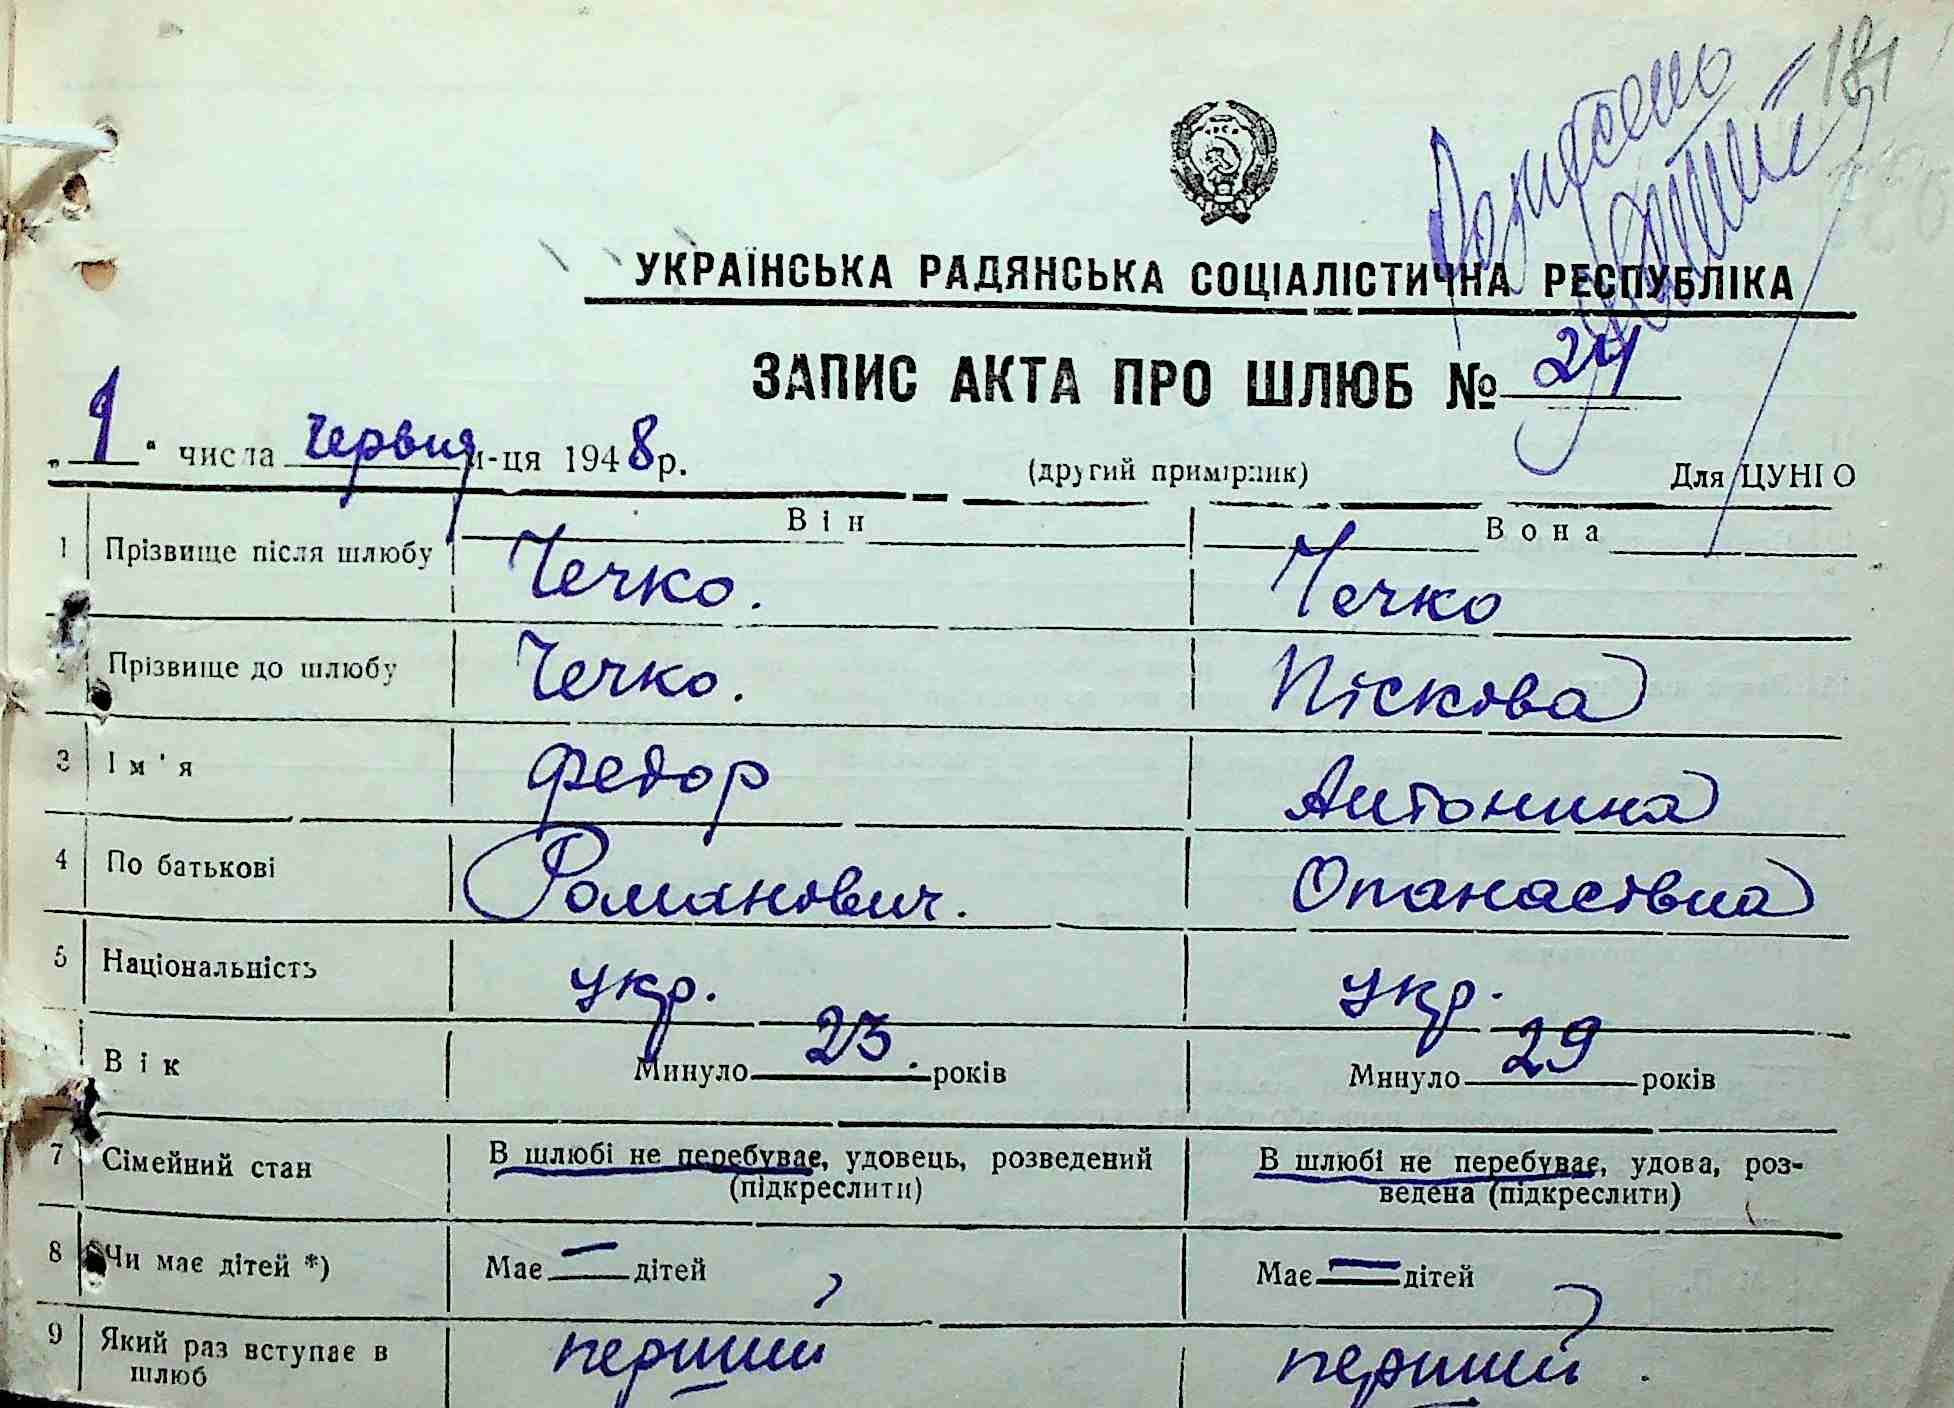 181
УКРАЇНСЬКА РАДЯНСЬКА СОЦІАЛІСТИЧНА РЕСПУБЛІКА
ЗАПИС АКТА ПРО ШЛЮБ № 24
„1“ числа червня м-ця 1948 р. (другий примірник) Для ЦУНГО
Він Вона
1 Прізвище після шлюбу Течко. Течко
2 Прізвище до шлюбу Течко. Піскова
3 Ім'я Федор Антонина
4 По батькові Романович. Опанасівна
5 Національність укр. укр.
Вік Минуло 23 років Минуло 29 років
7 Сімейний стан В шлюбі не перебуває, удовець, розведений В шлюбі не перебуває, удова, роз-
(підкреслити) ведена (підкреслити)
8 Чи має дітей *) Має — дітей Має — дітей
9 Який раз вступає в перший перший.
шлюб